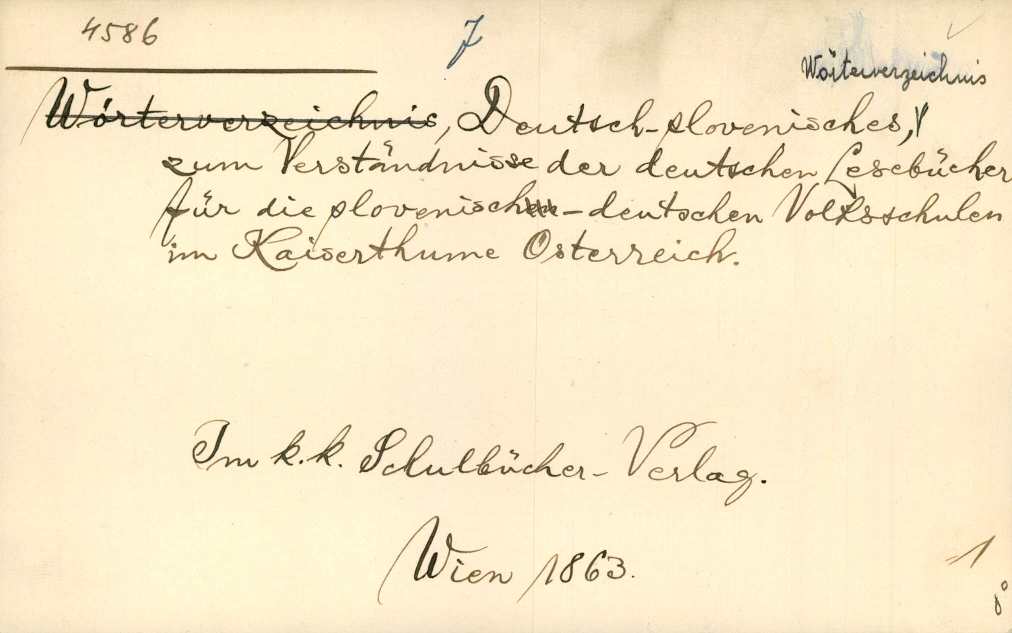 4586
J
Wörterverzeichnis
Wörterverzeichnis, Deutsch-slovenisches,
zum Verständnisse der deutschen Lesebücher
für die slovenisch-deutschen Volksschulen
im Kaiserthume Österreich.
Im k.k. Schulbücher-Verlag.
Wien 1863.
1